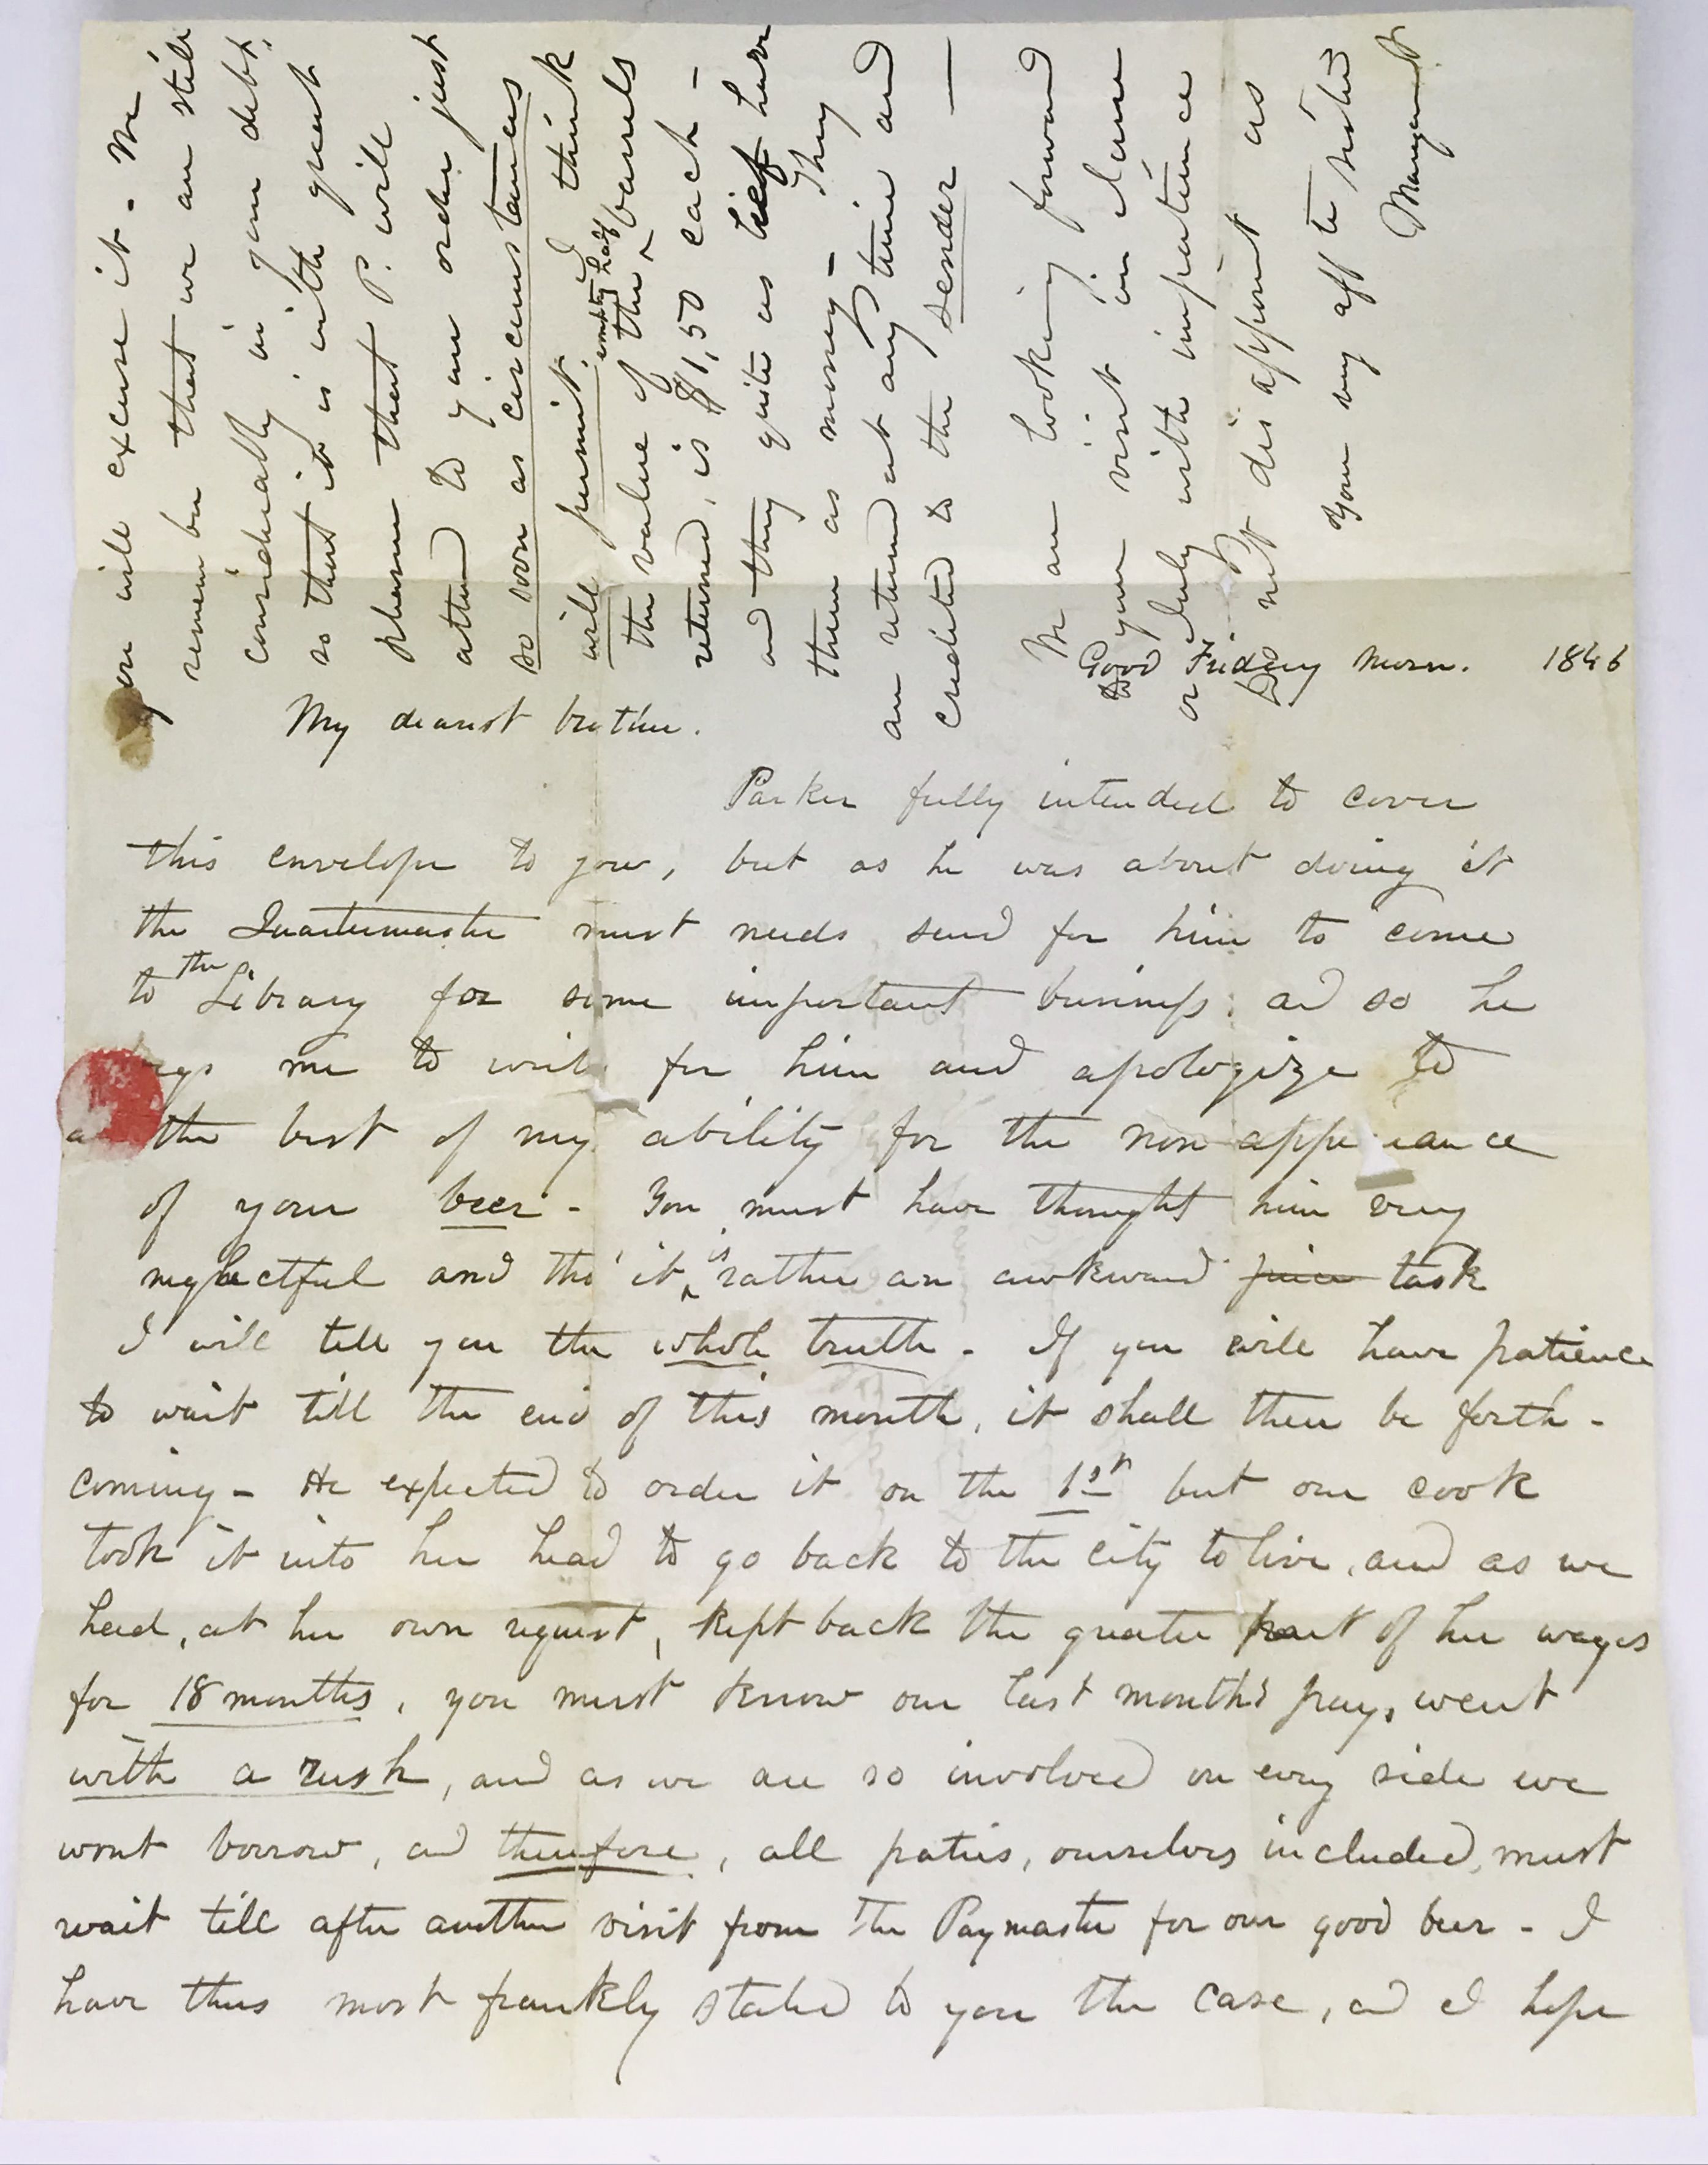 Good Friday Morn. 1846
My dearest brother.
Parker fully intended to cover
this envelope to you, but as he was about doing it
the Quartermaster must needs send for him to come
to the Library for some important business; and so he
begs me to write for him and apologize to
the best of my ability for the non appearance
of your beer - You must have thought him very
neglectful and tho' it is rather an awkward task
I will tell you the whole truth - If you will have patience
to wait till the end of this month, it shall then be forth-
coming - He expected to order it on the 1st but our cook
took it into her head to go back to the city to live, and as we
had, at her own request, kept back the greater part of her wages
for 18 months, you must know our last month's pay, went
with a rush, and as we are so involved on every side we
wont borrow, and therefore, all parties, ourselves included, must
wait till after another visit from the Paymaster for our good beer - I
have thus most frankly stated to you the case, and I hope
you will excuse it - We
remember that we are still
considerably in your debt,
so that it is with great
pleasure that P. will
attend to your order just
so soon as circumstances
will permit. I think
the value of the empty half barrels
returned, is $1,50 each -
and they quite as lief have
them as money - They
are returned at any time and
credited to the sender —
We are looking forward
to your visit in June
or July with impatience
Do not disappoint us
Your very aff te sister
Margaret